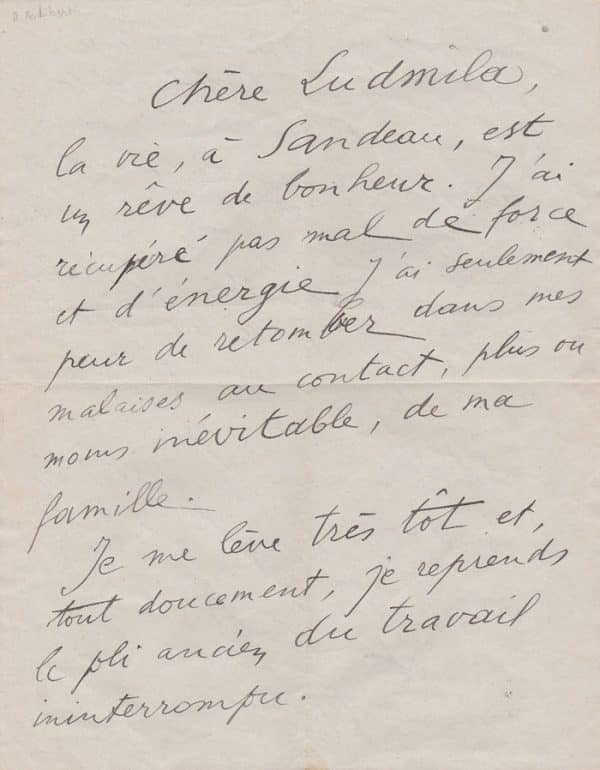 Chère Ludmila,
la vie, à Sandeau, est
un rêve de bonheur. J'ai
récupéré pas mal de force
et d'énergie J'ai seulement
peur de retomber dans mes
malaises au contact, plus ou
moins inévitable, de ma
famille.
Je me lève très tôt et,
tout doucement, je reprends
le pli ancien du travail
ininterrompu.